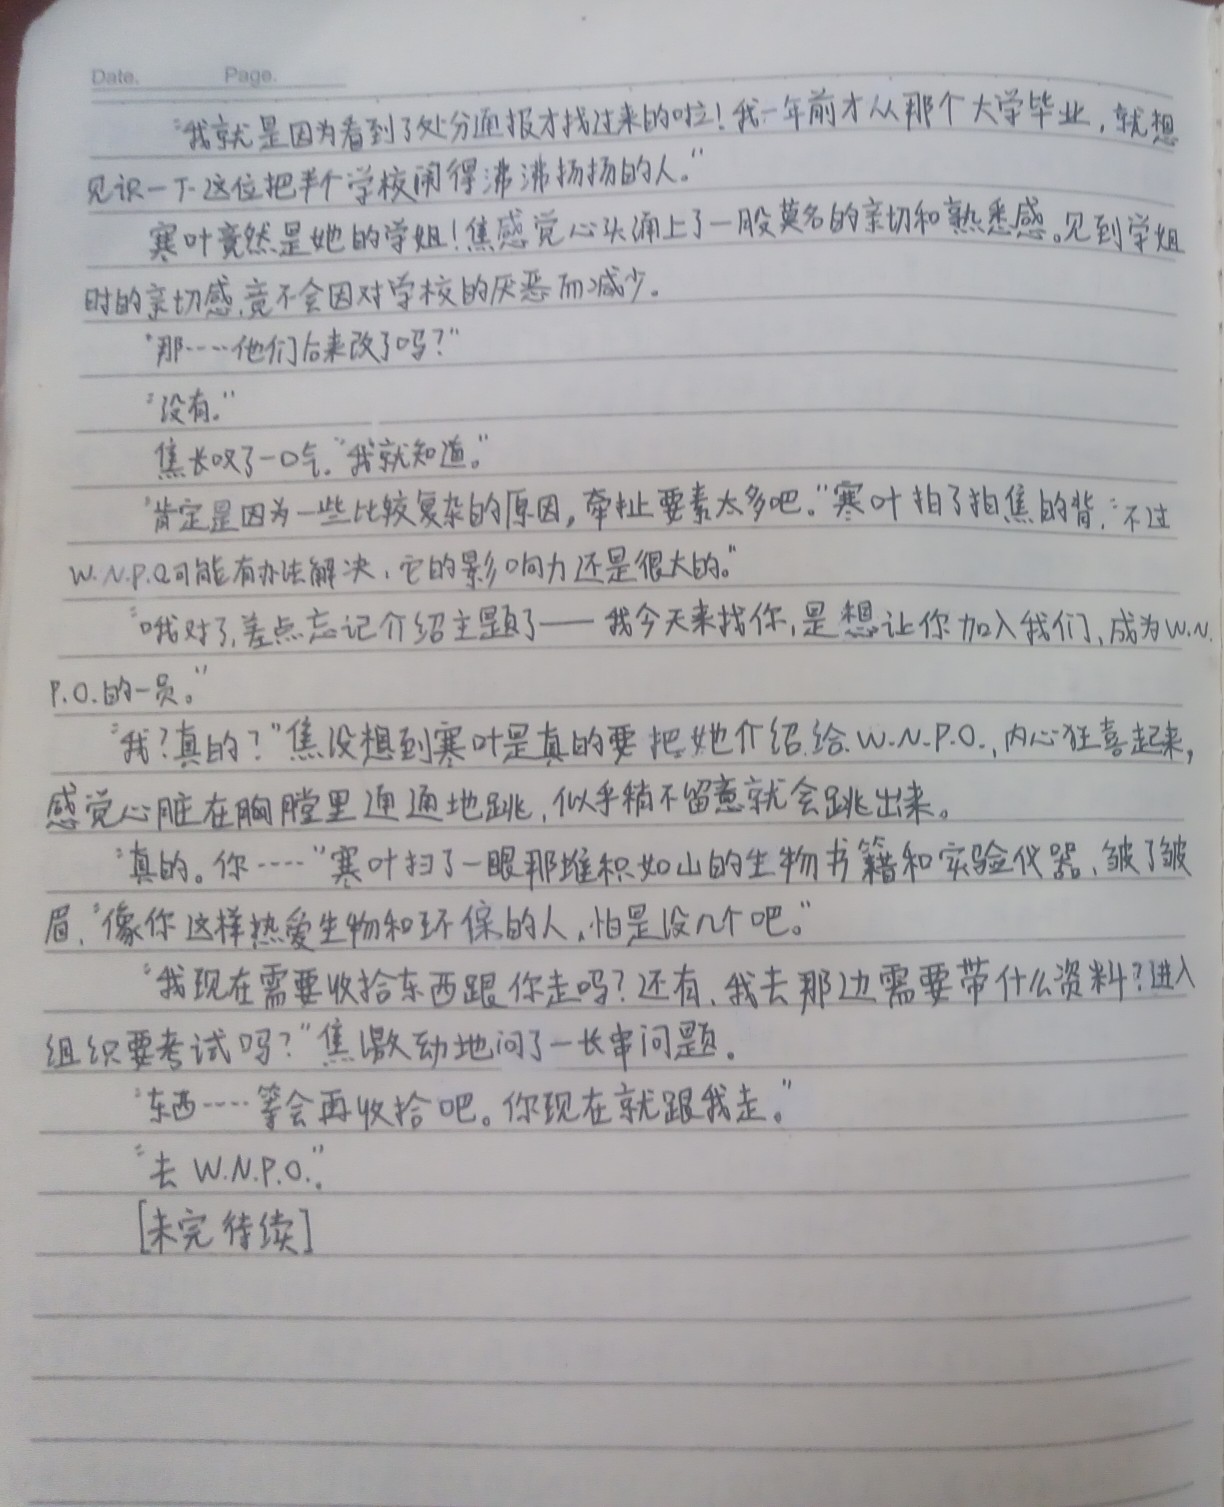 Date. Page.
"我就是因为看到了处分通报才找过来的啦！我一年前才从那个大学毕业，就想
见识一下这位把半个学校闹得沸沸扬扬的人。"
寒叶竟然是她的学姐！焦感觉心头涌上了一股莫名的亲切和熟悉感。见到学姐
时的亲切感，竟不会因对学校的厌恶而减少。
"那……他们后来改了吗？"
"没有。"
焦长叹了一口气。"我就知道。"
"肯定是因为一些比较复杂的原因，牵扯要素太多吧。"寒叶拍了拍焦的背，"不过
W.N.P.O.可能有办法解决，它的影响力还是很大的。"
"哦对了，差点忘记介绍主题了——我今天来找你，是想让你加入我们，成为W.N.
P.O.的一员。"
"我？真的？"焦没想到寒叶是真的要把她介绍给W.N.P.O.，内心狂喜起来，
感觉心脏在胸膛里通通地跳，似乎稍不留意就会跳出来。
"真的。你……"寒叶扫了一眼那堆积如山的生物书籍和实验仪器，皱了皱
眉，"像你这样热爱生物和环保的人，怕是没几个吧。"
"我现在需要收拾东西跟你走吗？还有，我去那边需要带什么资料？进入
组织要考试吗？"焦激动地问了一长串问题。
"东西……等会再收拾吧。你现在就跟我走。"
"去W.N.P.O."。
[未完待续]